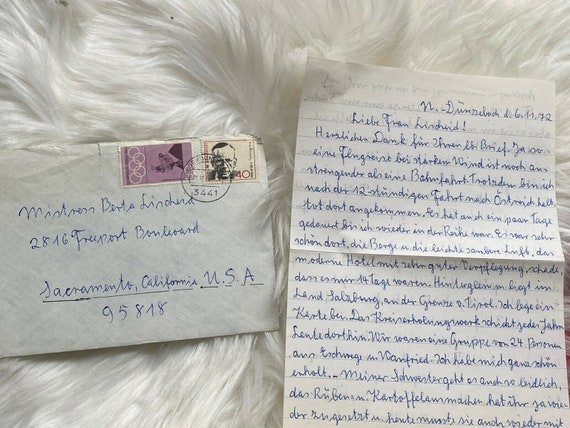 Mistress Berta Lischeid
2816 Freeport Boulevard
Sacramento, California U.S.A
95818
3441
40
N.-Dünzebach d. 6.11.72
Liebe Frau Lischeid!
Herzlichen Dank für Ihren lb Brief. Ja so
eine Flugreise bei starkem Wind ist noch an=
strengender als eine Bahnfahrt. Trotzdem bin ich
nach der 12 stündigen Fahrt nach Östreich halb
tot dort angekommen. Es hat auch ein paar Tage
gedauert bis ich wieder in der Reihe war. Es war sehr
schön dort, die Berge u. die leichte saubere Luft, das
moderne Hotel mit sehr guter Verpflegung, schade
dass es nur 14 Tage waren. Hinterglemm liegt im
Land Salzburg, an der Grenze v. Tirol. Ich lege ein
Karte bei. Das Kreiserholungswerk schickt jedes Jahr
Leute dorthin. Wir waren eine Gruppe von 24 Personen
aus Eschwege u. Wanfried. Ich habe mich ganz schön
erholt. Meiner Schwester geht es auch so leidlich,
das Rüben u. Kartoffelausmachen hat ihr ja wie
der zugesetzt u. heute musste sie auch wieder mit